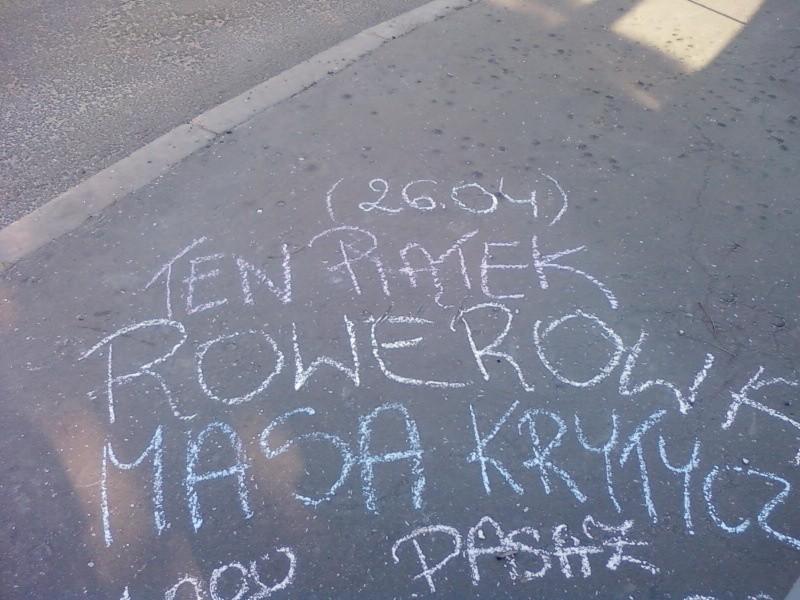 (26.04)
TEN PIĄTEK
ROWEROWA
MASA KRYTYCZ
PASAŻ